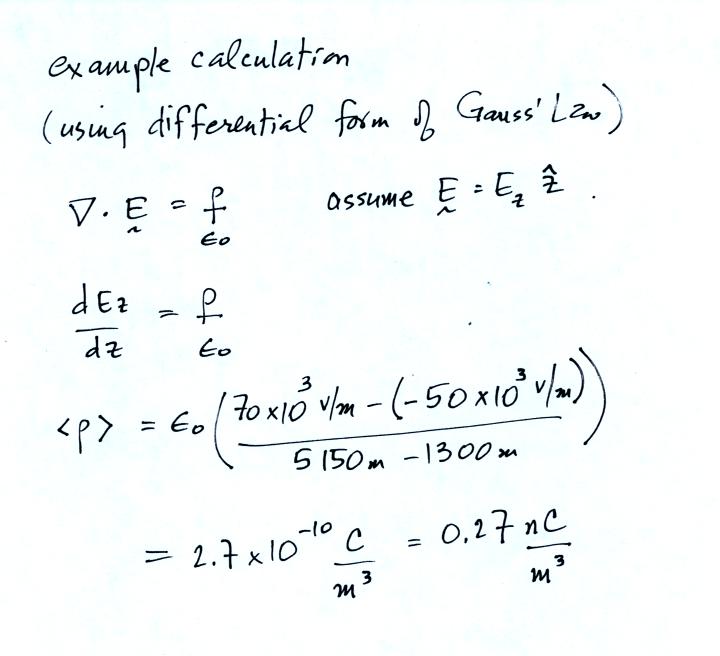 example calculation
(using differential form of Gauss' Law)
∇·Ḛ = ρ/ϵ₀ assume Ḛ = E_z ẑ .
dE_z/dz = ρ/ϵ₀
<ρ> = ϵ₀ ( (70 x 10³ V/m - (-50 x 10³ V/m)) / (5150 m - 1300 m) )
= 2.7 x 10⁻¹⁰ C/m³ = 0.27 nC/m³